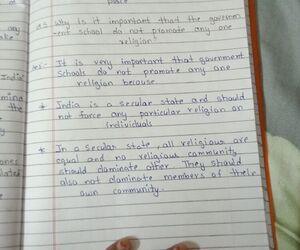 place
Q.5 Why is it important that the governm
-ent school do not promote any one
religion?
Ans:- It is very important that government
Schools do not promote any one
religion because.
* India is a secular state and should
not force any particular religion on
individuals
* In a Secular state, all religious are
equal and no religious community
should dominate other. They should
also not dominate members of their
own community.